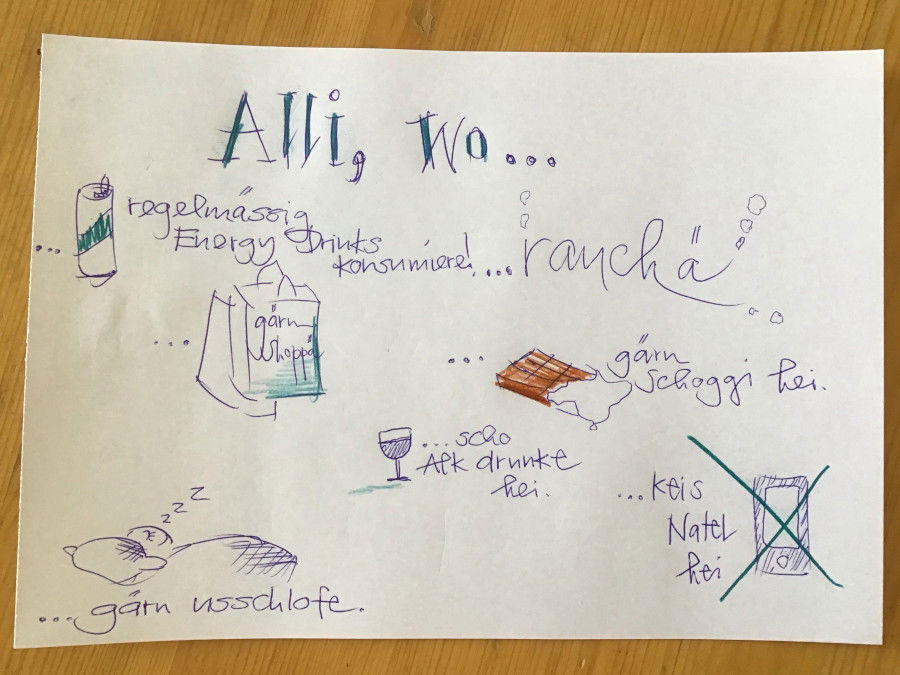 Alli, wo...
... regelmässig
Energy Drinks
konsumiere!
...rauchä
...
gärn
shoppä
...
gärn
Schoggi hei.
...scho
Alk drunke
hei.
...keis
Natel
hei
z z Z
...gärn usschlofe.